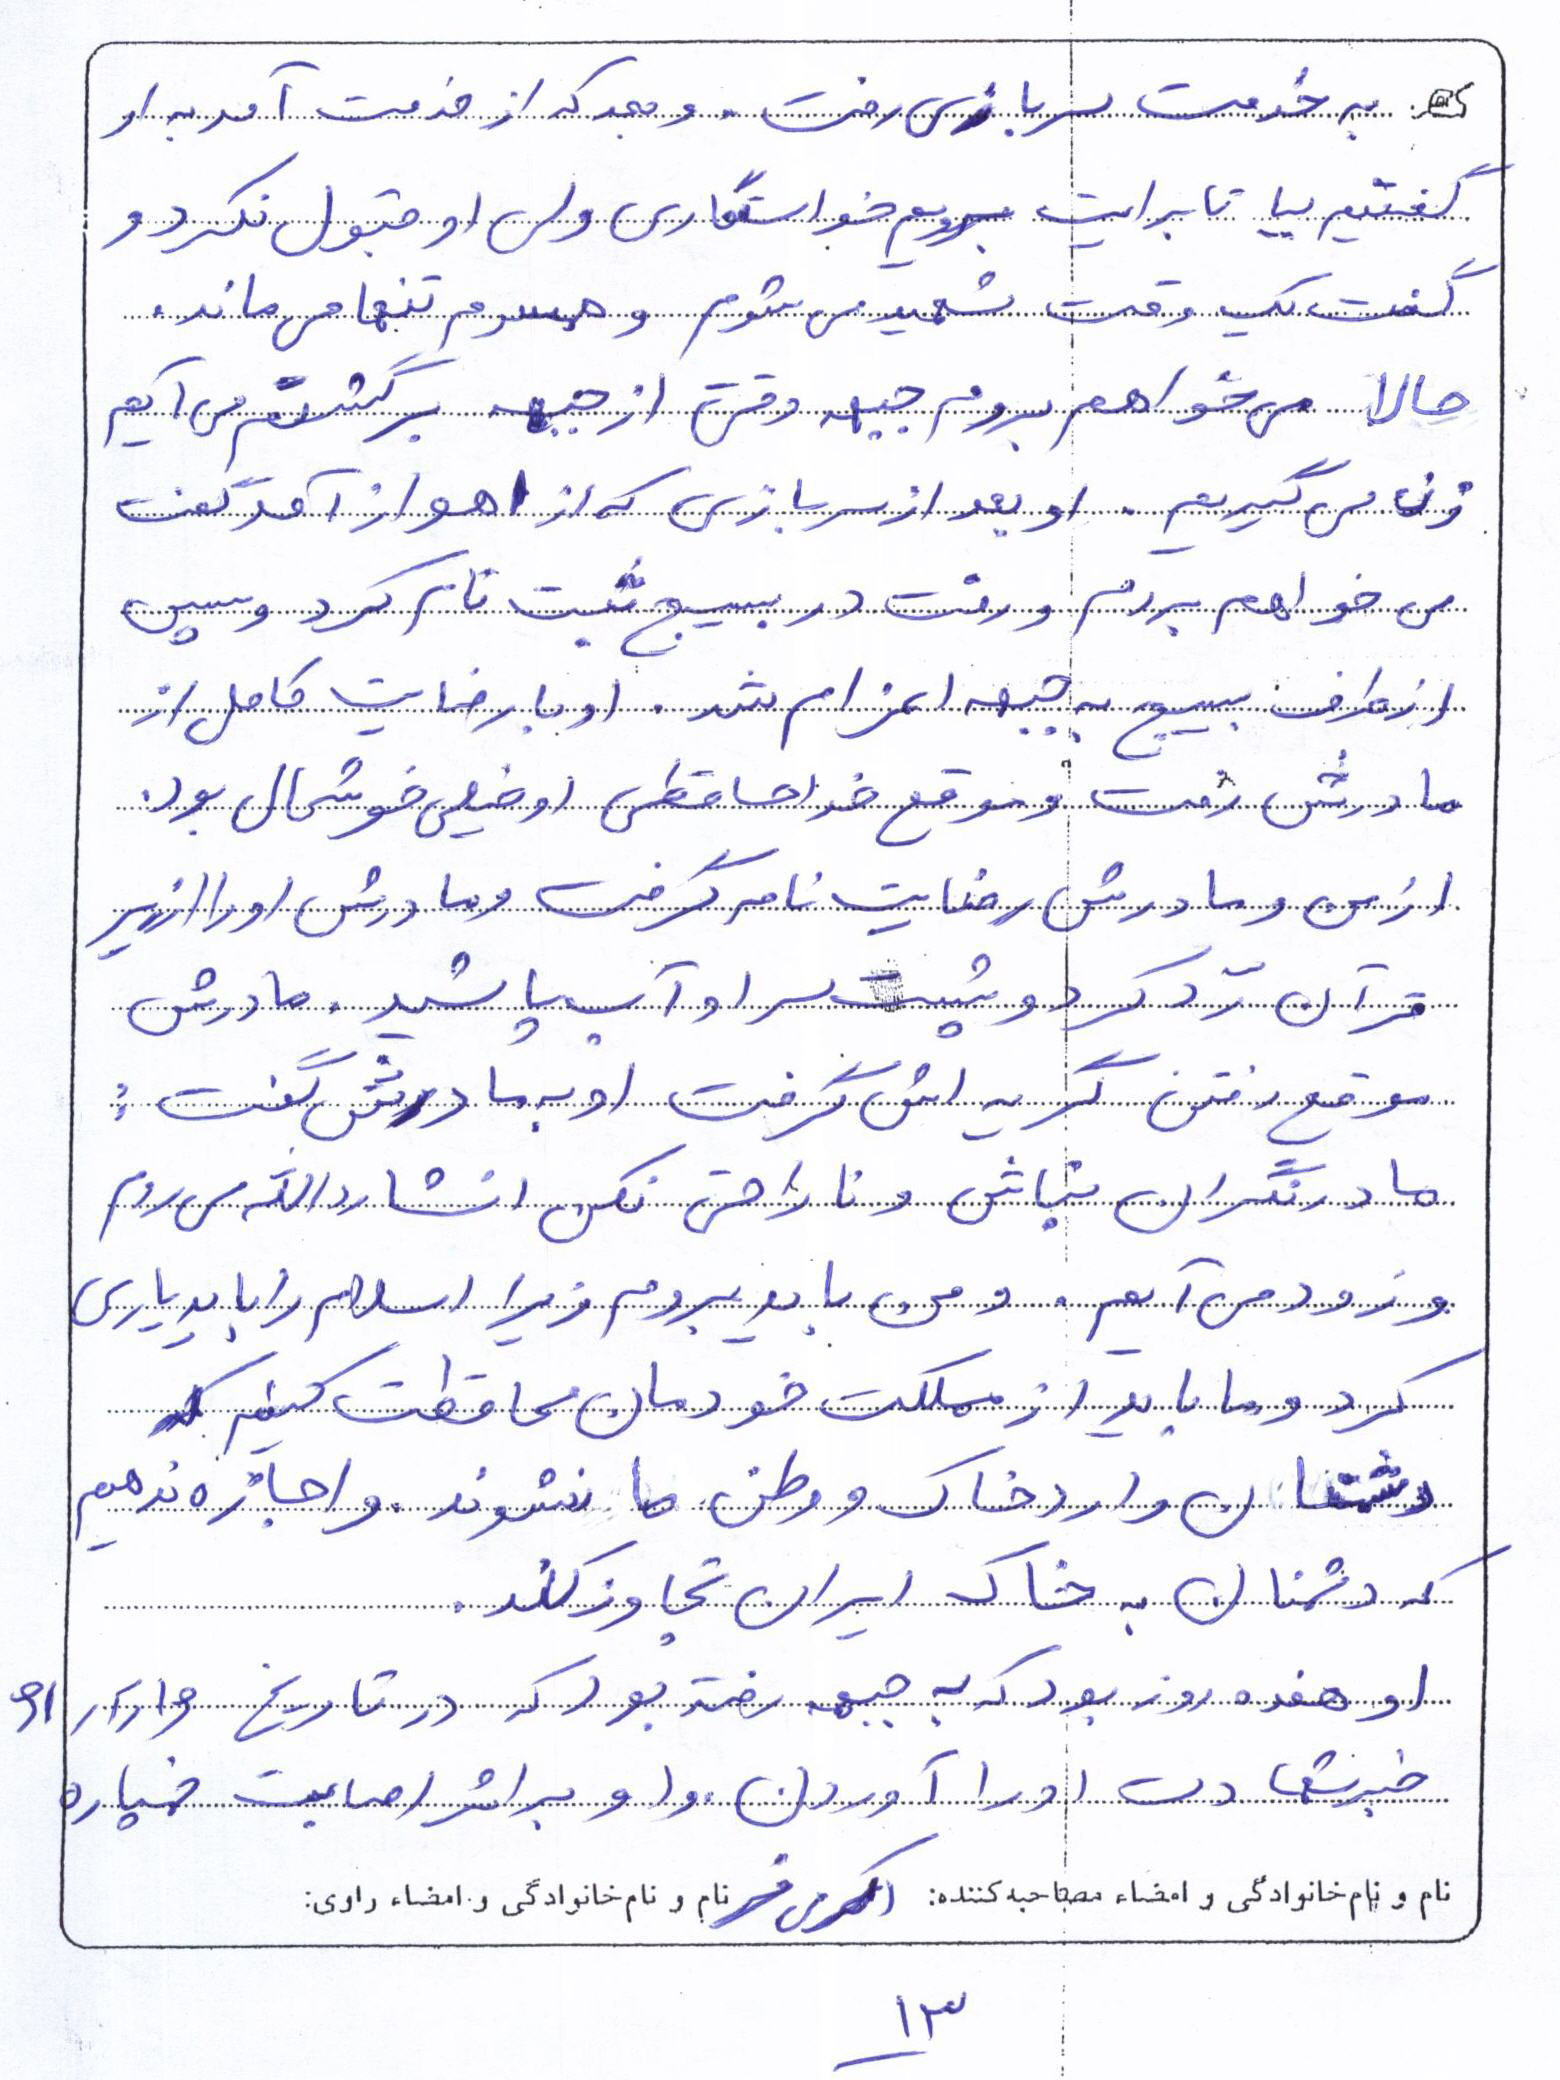 به خدمت سربازی رفت . و بعد که از خدمت آمد به او
گفتیم بیا تا برایت برویم خواستگاری ولی او قبول نکرد و
گفت یک وقت شهید می شوم و همسرم تنها می ماند .
حالا می خواهم بروم جبهه وقتی از جبهه برگشتم می آیم
زن می گیریم . او بعد از سربازی که از اهواز آمد گفت
می خواهم بروم و رفت در بسیج ثبت نام کرد و سپس
از طرف بسیج به جبهه اعزام شد . او با رضایت کامل از
مادرش رفت و موقع خداحافظی او خیلی خوشحال بود .
از من و مادرش رضایت نامه گرفت و مادرش او را از زیر
قرآن ردّ کرد و پشت سر او آب پاشید . مادرش
موقع رفتن گریه اش گرفت او به مادرش گفت :
مادر نگران نباش و ناراحتی نکن انشاءالله می روم
و زود می آیم . و من باید بروم زیرا اسلام را باید یاری
کرد و ما باید از مملکت خودمان محافظت کنیم
دشمنان وارد خاک و وطن ما نشوند . و اجازه ندهیم
که دشمنان به خاک ایران تجاوز کنند .
او هفده روز بود که به جبهه رفته بود که در تاریخ
خبر شهادت او را آوردن . و او بر اثر اصابت خمپاره
نام و نام خانوادگی و امضاء مصاحبه کننده: نام و نام خانوادگی و امضاء راوی:
۱۳